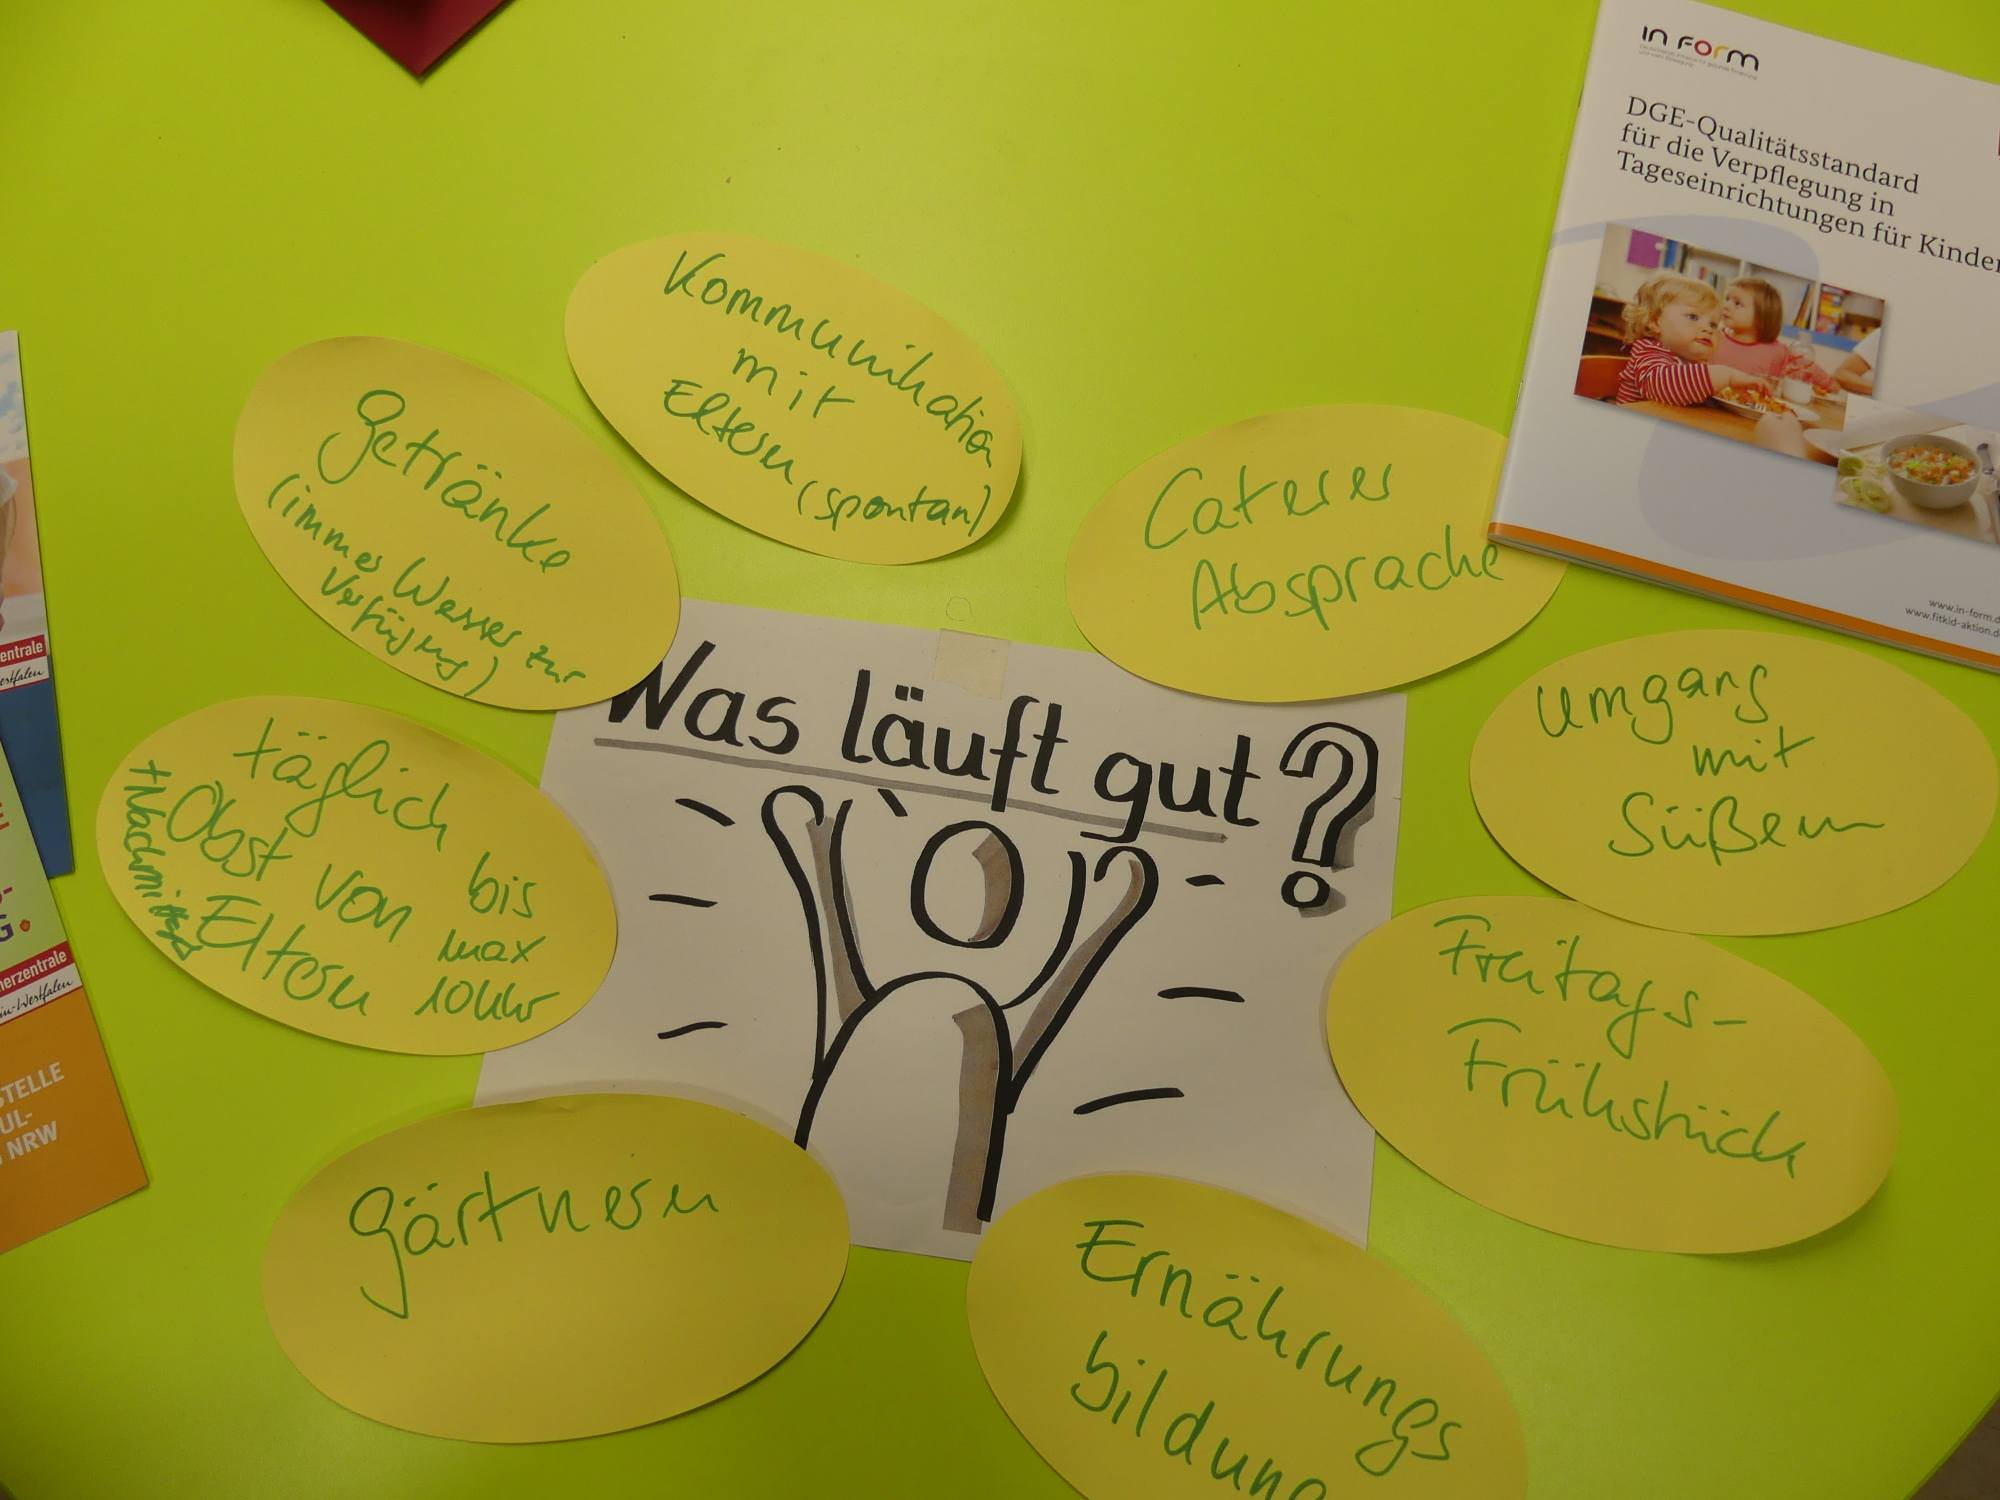 IN FORM
DGE-Qualitätsstandard
für die Verpflegung in
Tageseinrichtungen für Kinder
www.in-form.d
www.fitkid-aktion.d
Kommunikation
mit
Eltern (spontan)
Getränke
(immer Wasser zur
Verfügung)
Caterer
Absprache
Was läuft gut?
Umgang
mit
Süßem
täglich bis
Obst von max
Eltern 10 Uhr
+ Nachmittags
Freitags-
Frühstück
Gärtnern
Ernährungs
bildung
entrale
estfalen
G.
herzentrale
in-Westfalen
STELLE
UL-
NRW